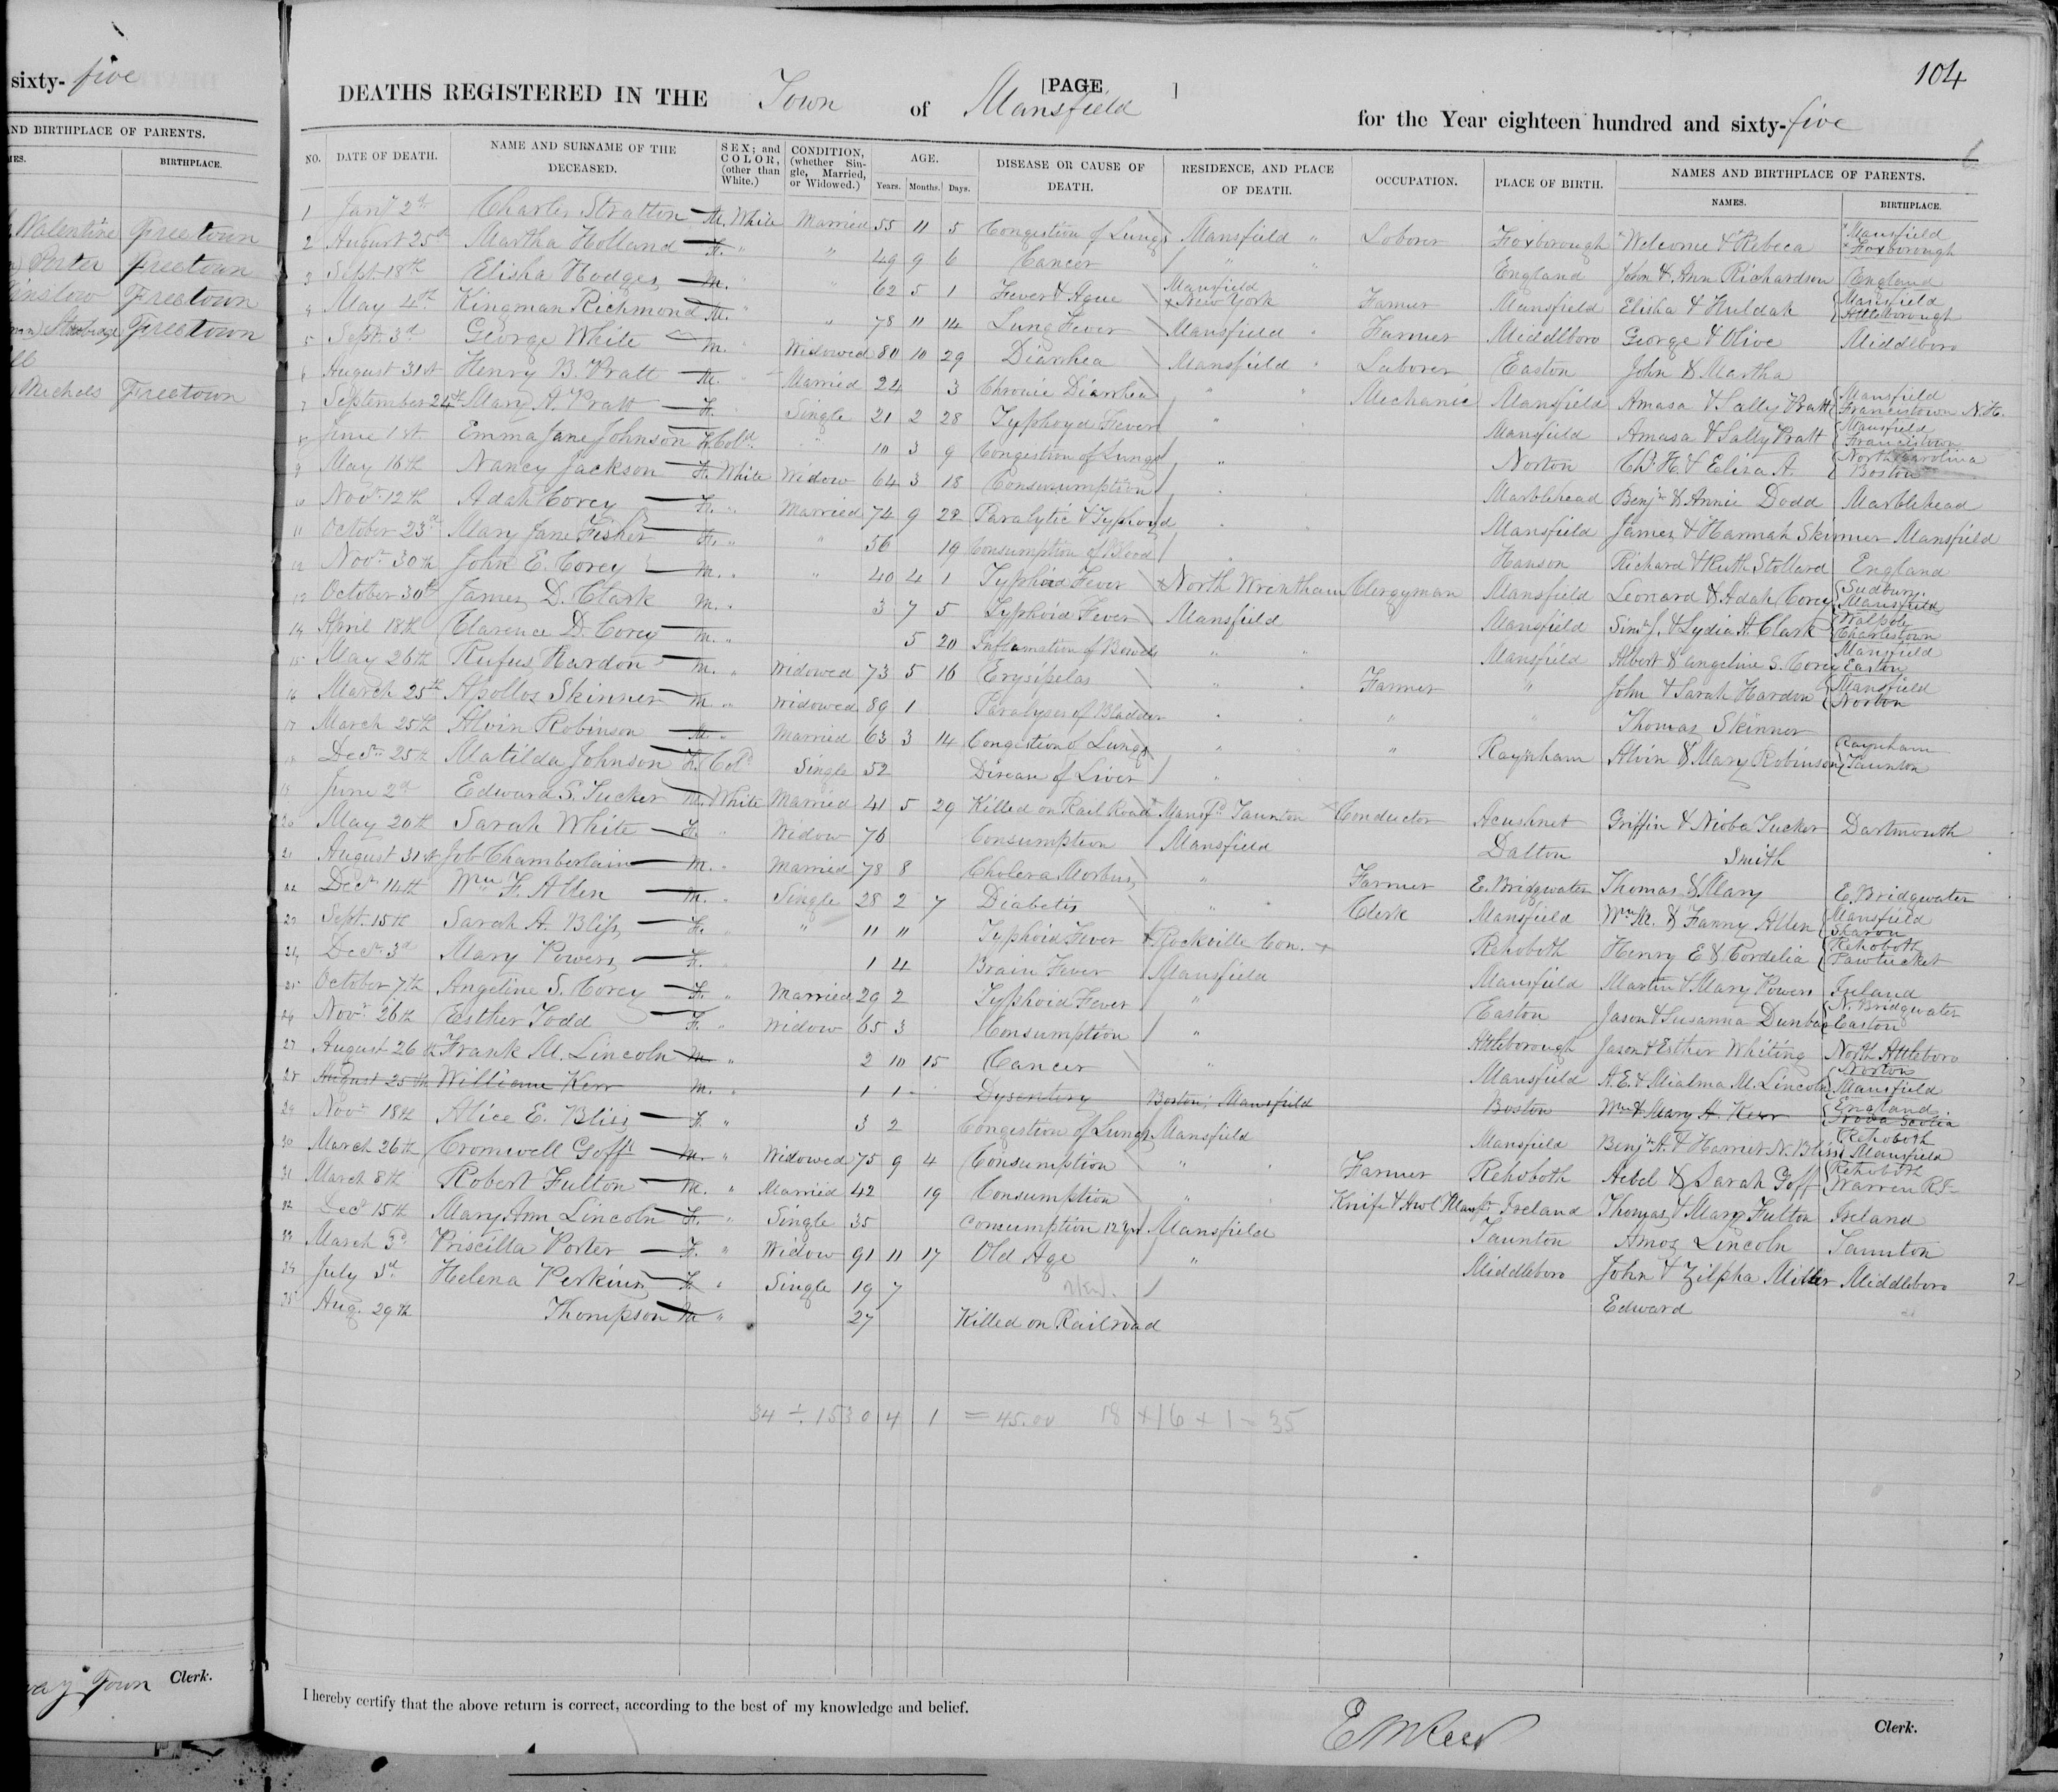 sixty- five
AND BIRTHPLACE OF PARENTS.
BIRTHPLACE.
Valentine Freetown
Porter Freetown
Winslow Freetown
Freetown
Michels Freetown
Town Clerk.
104
[PAGE ]
DEATHS REGISTERED IN THE Town of Mansfield for the Year eighteen hundred and sixty- five
NO. DATE OF DEATH. NAME AND SURNAME OF THE DECEASED. SEX; and COLOR, (other than White.) CONDITION, (whether Single, Married, or Widowed.) AGE. Years. Months. Days. DISEASE OR CAUSE OF DEATH. RESIDENCE, AND PLACE OF DEATH. OCCUPATION. PLACE OF BIRTH. NAMES AND BIRTHPLACE OF PARENTS. NAMES. BIRTHPLACE.
1 Jany 2d Charles Stratton M. White Married 55 11 5 Congestion of Lungs Mansfield " Laborer Foxborough Welcome & Rebeca Mansfield Foxborough
2 August 25th Martha Holland F. " " 49 9 6 Cancer " England John & Ann Richardson England
3 Sept 18th Elisha Hodges M. " 62 5 1 Fever & Ague Mansfield New York Farmer Mansfield Elisha & Huldah Mansfield Attleborough
4 May 4th Kingman Richmond M. " " 78 11 14 Lung Fever Mansfield " Farmer Middlboro George & Olive Middleboro
5 Sept. 3d George White M. Widowed 80 10 29 Diarrhea Mansfield " Laborer Easton John & Martha
6 August 31st Henry B. Pratt M. Married 24 3 Chronic Diarrhea " " Mechanic Mansfield Amasa & Sally Pratt Mansfield Francistown N.H.
7 September 24th Mary A. Pratt F. Single 21 2 28 Typhoyd Fever " Mansfield Amasa & Sally Pratt Mansfield Francistown
8 June 1st Emma Jane Johnson F. Cold " 10 3 9 Congestion of Lungs " Norton Chs H. & Eliza A. North Carolina Boston
9 May 16th Nancy Jackson F. White Widow 64 3 18 Consumption Marblehead Benjn & Annie Dodd Marblehead
10 Novr 12th Adah Corey F. " Married 74 9 22 Paralytic & Typhoyd Mansfield James & Hannah Skinner Mansfield
11 October 23rd Mary Jane Fisher F. " " 56 19 Consumption of Blood Hanson Richard & Ruth Stollard England
12 Novr 30th John E. Corey M. " " 40 4 1 Typhoid Fever North Wrentham Clergyman Mansfield Leonard & Adah Corey Sudbury. Mansfield
13 October 30th James D. Clark M. " 3 7 5 Typhoid Fever Mansfield Mansfield Simn J. & Lydia A. Clark Walpole Charlestown
14 April 18th Clarence D. Corey M. " 5 20 Inflamation of Bowels " " Mansfield Albert & Angeline S. Corey Mansfield Easton
15 May 26th Rufus Hardon M. " Widowed 73 5 16 Erysipelas " Farmer " John & Sarah Hardon Mansfield Norton
16 March 25th Apollos Skinner M. " Widowed 89 1 Paralyses of Bladder " " " Thomas Skinner
17 March 25th Alvin Robinson M. " Married 63 3 14 Congestion of Lungs " " Raynham Alvin & Mary Robinson Raynham Taunton
18 Decr 25th Matilda Johnson F. Cold Single 52 Disease of Liver "
19 June 2d Edward S. Tucker M. White Married 41 5 29 Killed on Rail Road Mansfd Taunton Conductor Acushnet Griffin & Nioba Tucker Dartmouth
20 May 20th Sarah White F. " Widow 76 Consumption Mansfield Dalton Smith
21 August 31st Job Chamberlain M. " Married 78 8 Cholera Morbus " Farmer E. Bridgwater Thomas & Mary E. Bridgwater
22 Decr 14th Wm F. Allen M. " Single 28 2 7 Diabetis " " Clerk Mansfield Wm M. & Fanny Allen Mansfield Sharon
23 Sept. 15th Sarah A. Bliss F. " " 11 11 Typhoid Fever Rockville Con. Rehoboth Henry E & Cordelia Rehoboth Pawtucket
24 Decr 3d Mary Powers F. " 1 4 Brain Fever Mansfield Mansfield Martin & Mary Powers Ireland
25 October 7th Angeline S. Corey F. " Married 29 2 Typhoid Fever " Easton Jason & Susanna Dunbar N. Bridgwater Easton
26 Novr 26th Esther Todd F. " Widow 65 3 Consumption " Attleborough Jason & Esther Whiting North Attleboro
27 August 26th Frank M. Lincoln M " 2 10 15 Cancer " Mansfield A. E. & Mialma M. Lincoln Norton Mansfield
28 August 25th William Kerr M. " 1 1 Dysentery Boston, Mansfield Boston Wm & Mary A. Kerr England Nova Scotia
29 Novr 18th Alice E. Bliss F. " 3 2 Congestion of Lungs Mansfield Mansfield Benjn A. & Harriet N. Bliss Rehoboth Mansfield
30 March 26th Cromwell Goff M. " Widowed 75 9 4 Consumption " " Farmer Rehoboth Aebel & Sarah Goff Rehoboth Warren R.I.
31 March 8th Robert Fulton M. " Married 42 19 Consumption " " Knife & Awl Manfr Ireland Thomas & Mary Fulton Ireland
32 Decr 15th Mary Ann Lincoln F. " Single 35 Consumption 12 yr Mansfield Taunton Amos Lincoln Taunton
33 March 3d Priscilla Porter F. " Widow 91 11 17 Old Age " Middleboro John & Zilpha Miller Middleboro
34 July 5d Helena Perkins F. " Single 19 7 Edward
35 Aug. 29th Thompson M " 27 Killed on Railroad
34 ÷ 1530 4 1 = 45.00 18 + 16 + 1 - 35
I hereby certify that the above return is correct, according to the best of my knowledge and belief.
E M Reed Clerk.